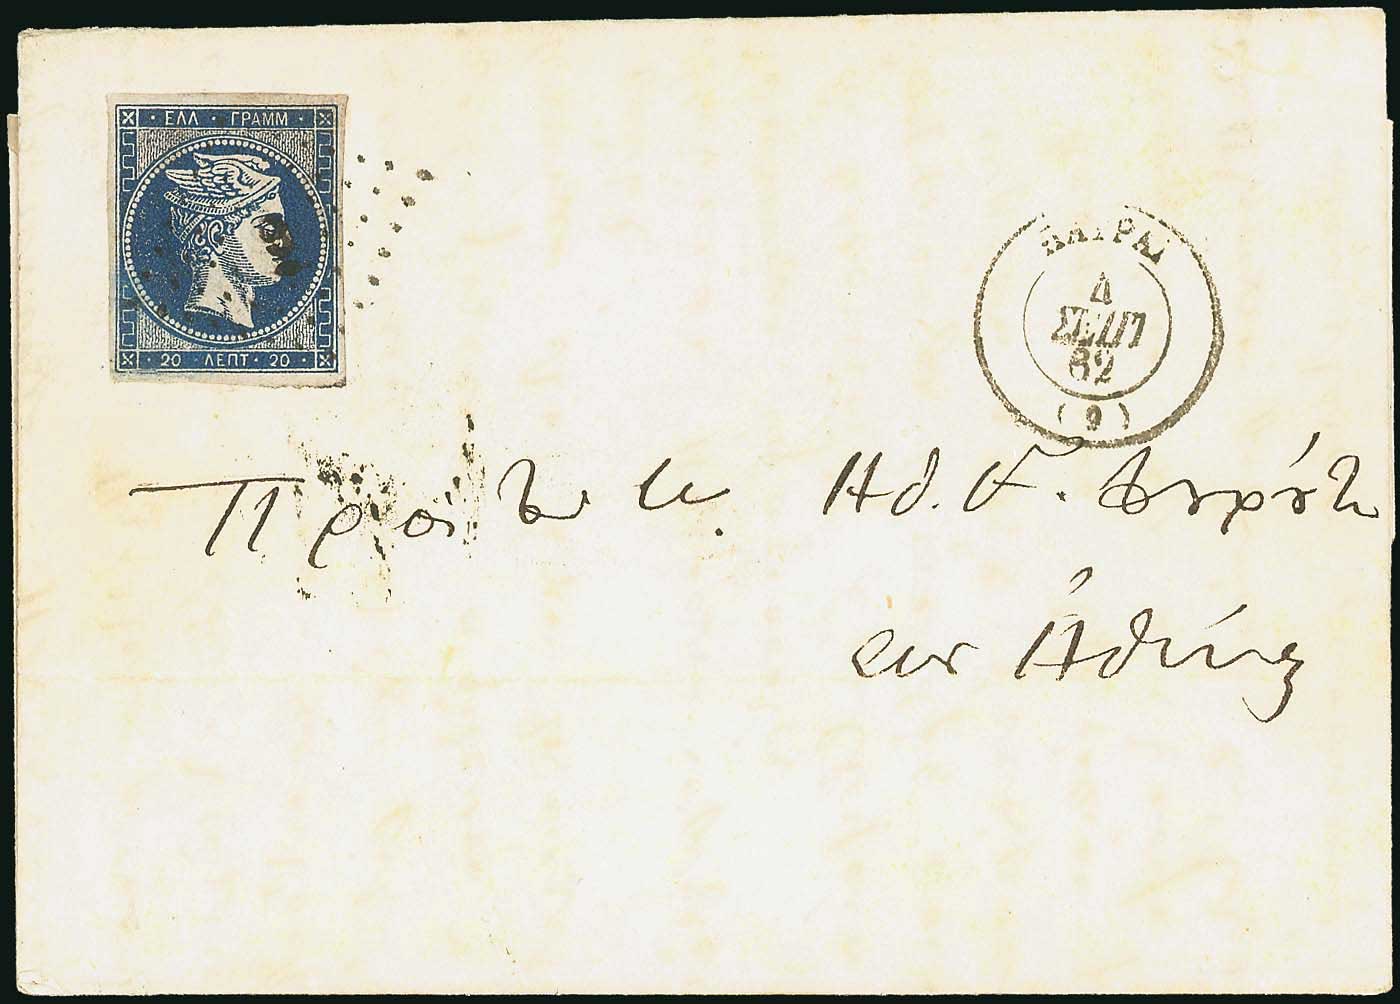 · ΕΛΛ · ΓΡΑΜΜ ·
· 20 · ΛΕΠΤ · 20 ·
ΠΑΤΡΑΙ
4
ΣΕΠΤ
62
(9)
Πρὸς τὸν Κ.
εις Ἀθήνας